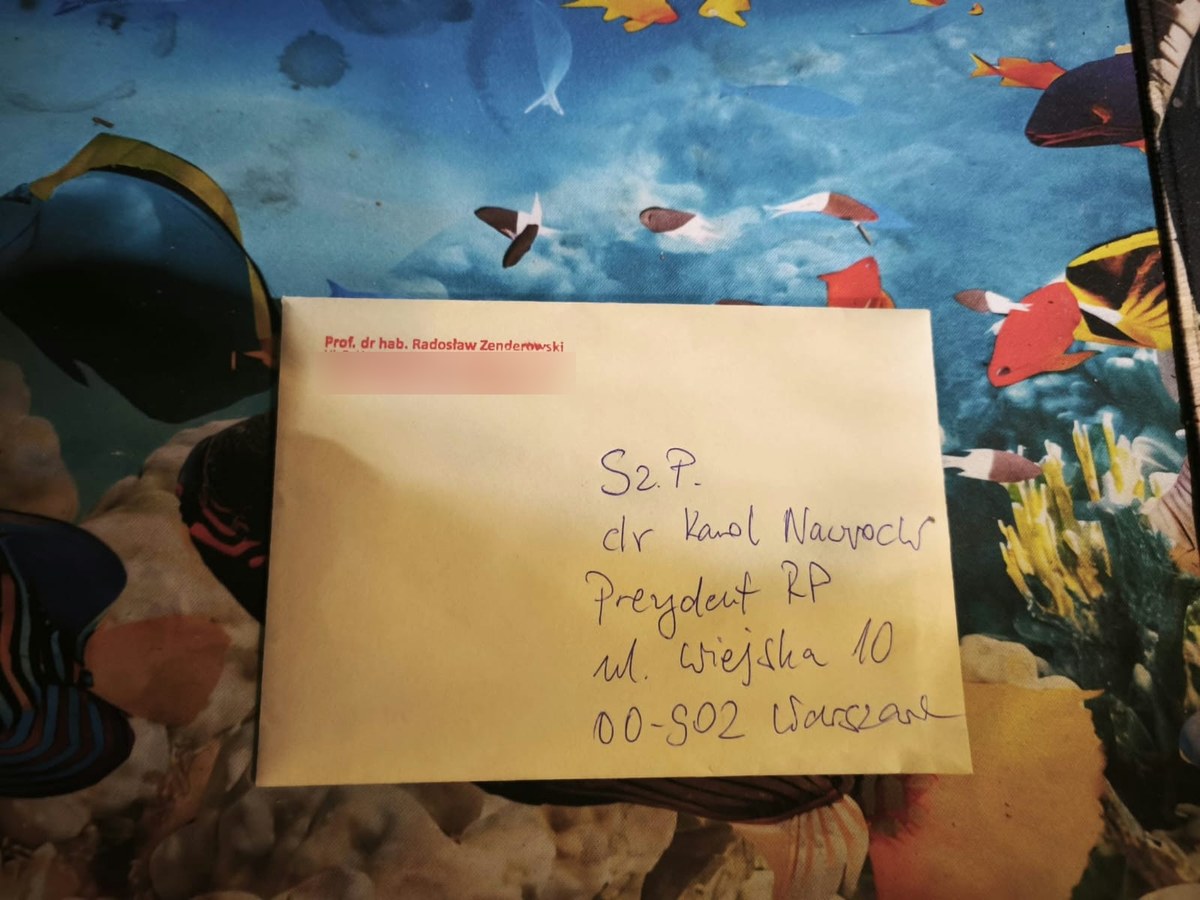 Prof. dr hab. Radosław Zenderowski
Sz. P.
dr Karol Nawrocki
Prezydent RP
ul. Wiejska 10
00-902 Warszawa